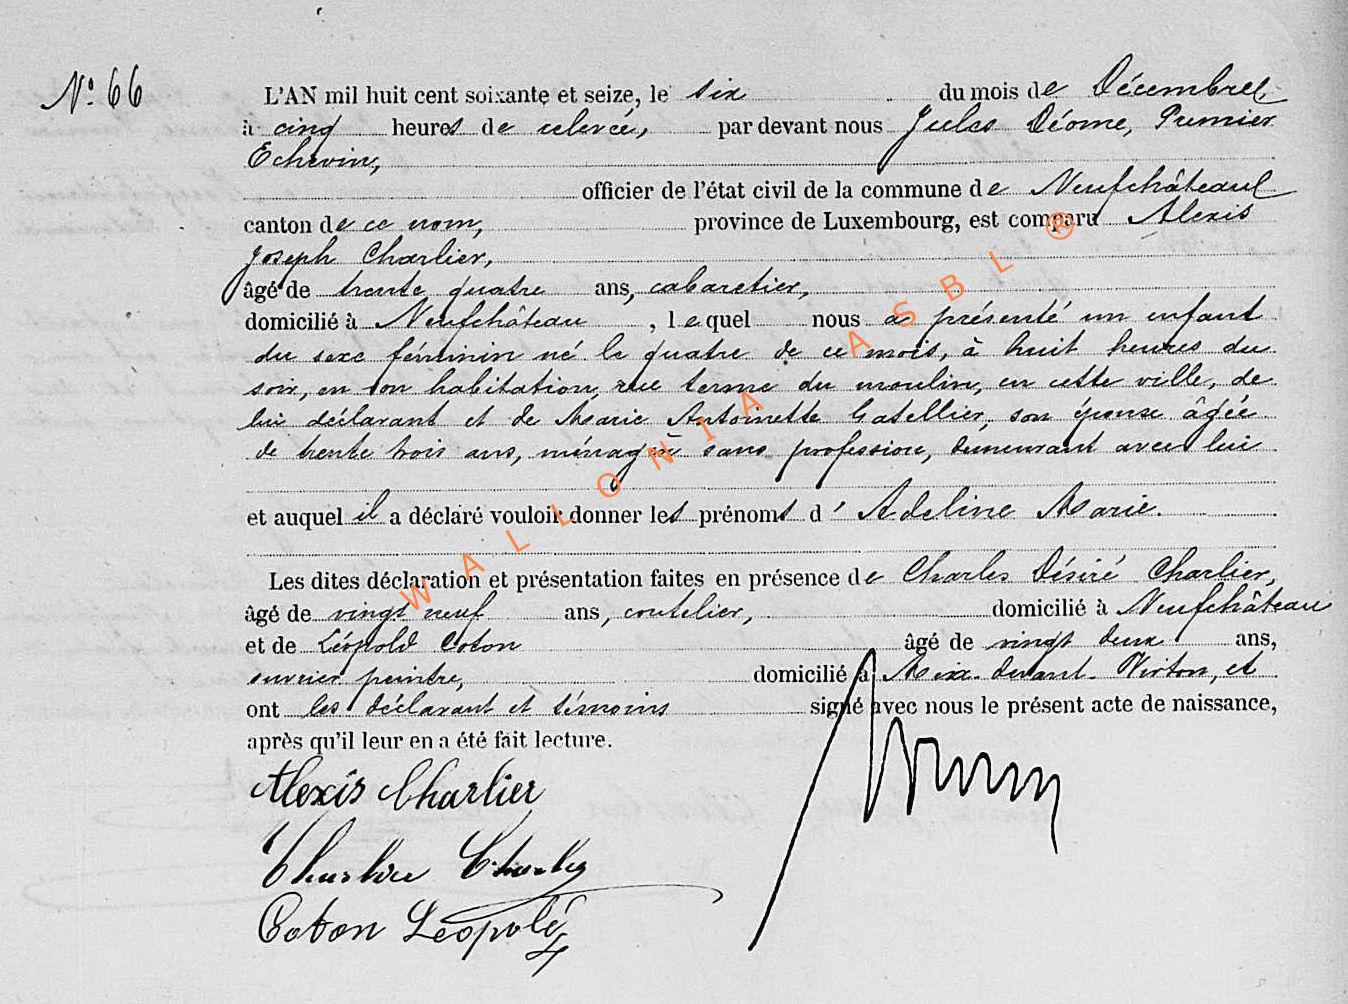 N° 66
L'AN mil huit cent soixante et seize, le six du mois de Décembre
à cinq heures de relevée, par devant nous Jules Déome, Premier
Echevin,
officier de l'état civil de la commune de Neufchâteau
canton de ce nom, province de Luxembourg, est comparu Alexis
Joseph Charlier,
âgé de trente quatre ans, cabaretier,
domicilié à Neufchâteau, lequel nous a présenté un enfant
du sexe féminin né le quatre de ce mois, à huit heures du
soir, en son habitation, rue terme du moulin, en cette ville, de
lui déclarant et de Marie Antoinette Gatellier, son épouse âgée
de trente trois ans, ménagère sans profession, demeurant avec lui
et auquel il a déclaré vouloir donner les prénoms d'Adeline Marie.
Les dites déclaration et présentation faites en présence de Charles Désiré Charlier,
âgé de vingt neuf ans, coutelier, domicilié à Neufchâteau
et de Léopold Coton âgé de vingt deux ans,
ouvrier peintre, domicilié à Meix-devant-Virton, et
ont les déclarant et témoins signé avec nous le présent acte de naissance,
après qu'il leur en a été fait lecture.
Alexis Charlier
Charlier Charles
Coton Léopold
WALLONIA ASBL ®